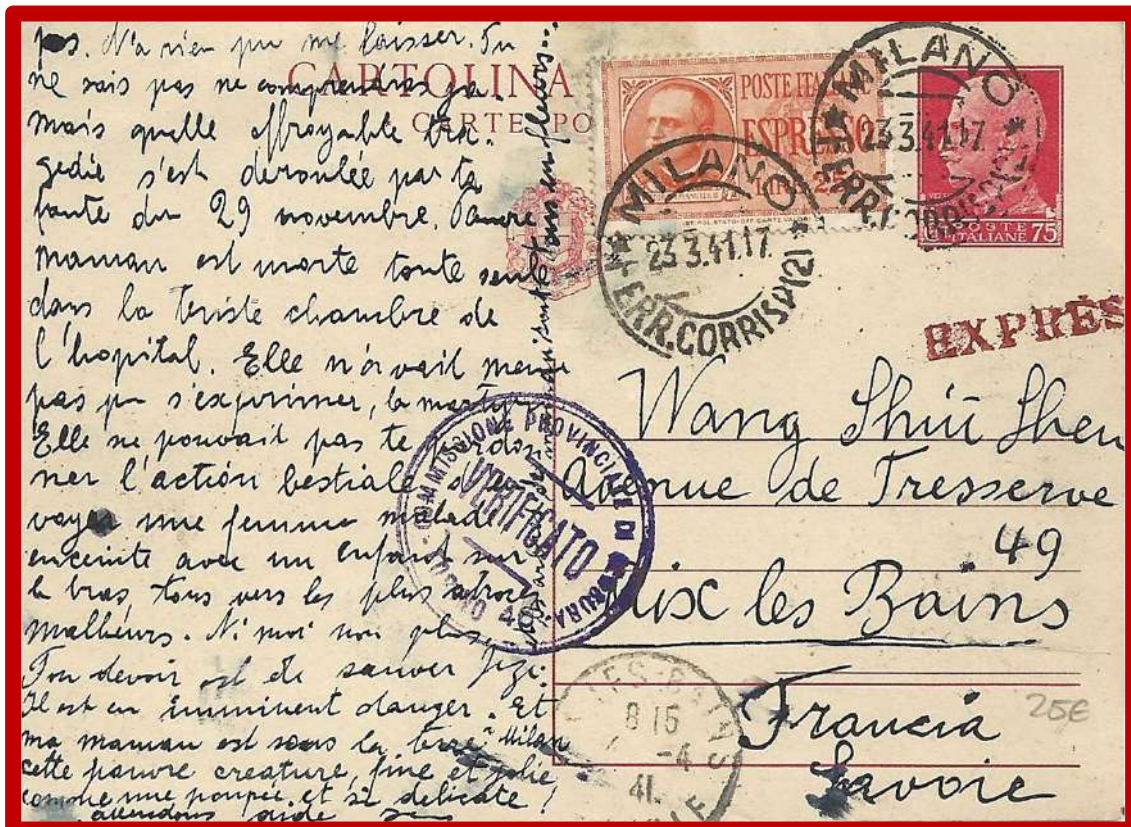 pas. N'a rien pu me laisser. Tu
ne sais pas ne comprendras ja-
mais quelle effroyable tra-
gedie s'est déroulée par ta
faute du 29 novembre. Pauvre
maman est morte toute seule
dans la triste chambre de
l'hopital. Elle n'avait meme
pas pu s'exprimer, la martyre
Elle ne pouvait pas te pardon
ner l'action bestiale
voyer une femme malade
enceinte avec un enfant sur
le bras, tous vers les plus atroces
malheurs. Ni moi non plus.
Ton devoir est de sauver
Il est en imminent danger. Et
ma maman est sous la terre à Milan
cette pauvre creature, fine et jolie
comme une poupée. et si delicate!
attendons
tous en fleurs...
CARTOLINA
CARTE PO
POSTE ITALIANE
ESPRESSO
LIRE
MILANO
23.3.41.17.
FERR. CORRISP.
MILANO
23.3.41.17.
FERR. CORRISP. (2)
POSTE
ITALIANE 75
EXPRES
COMMISSIONE PROVINCIALE DI CENSURA
VERIFICATO
Wang Shiü Shen
Avenue de Tresserve
49
Aix les Bains
Francia
Savoie
25€
LES-BAINS
8 15
-4
41.